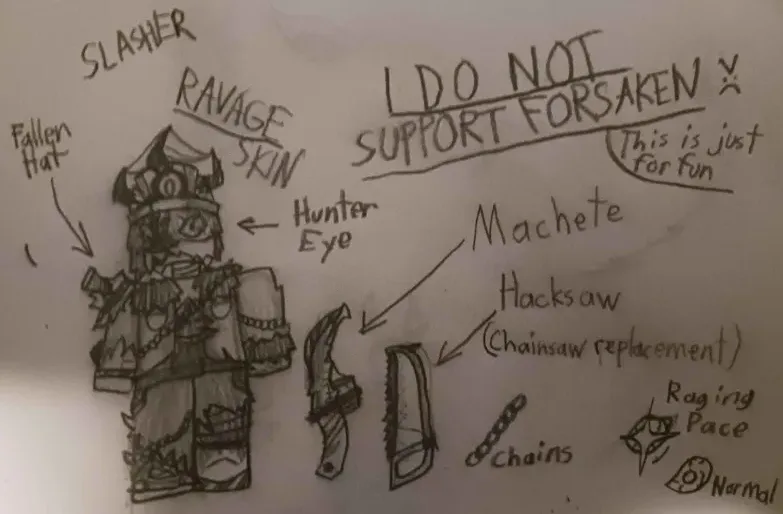 SLASHER
RAVAGE
SKIN
I DO NOT
SUPPORT FORSAKEN
This is just
for fun
Fallen
Hat
Hunter
Eye
Machete
Hacksaw
(Chainsaw replacement)
Chains
Raging
Pace
Normal